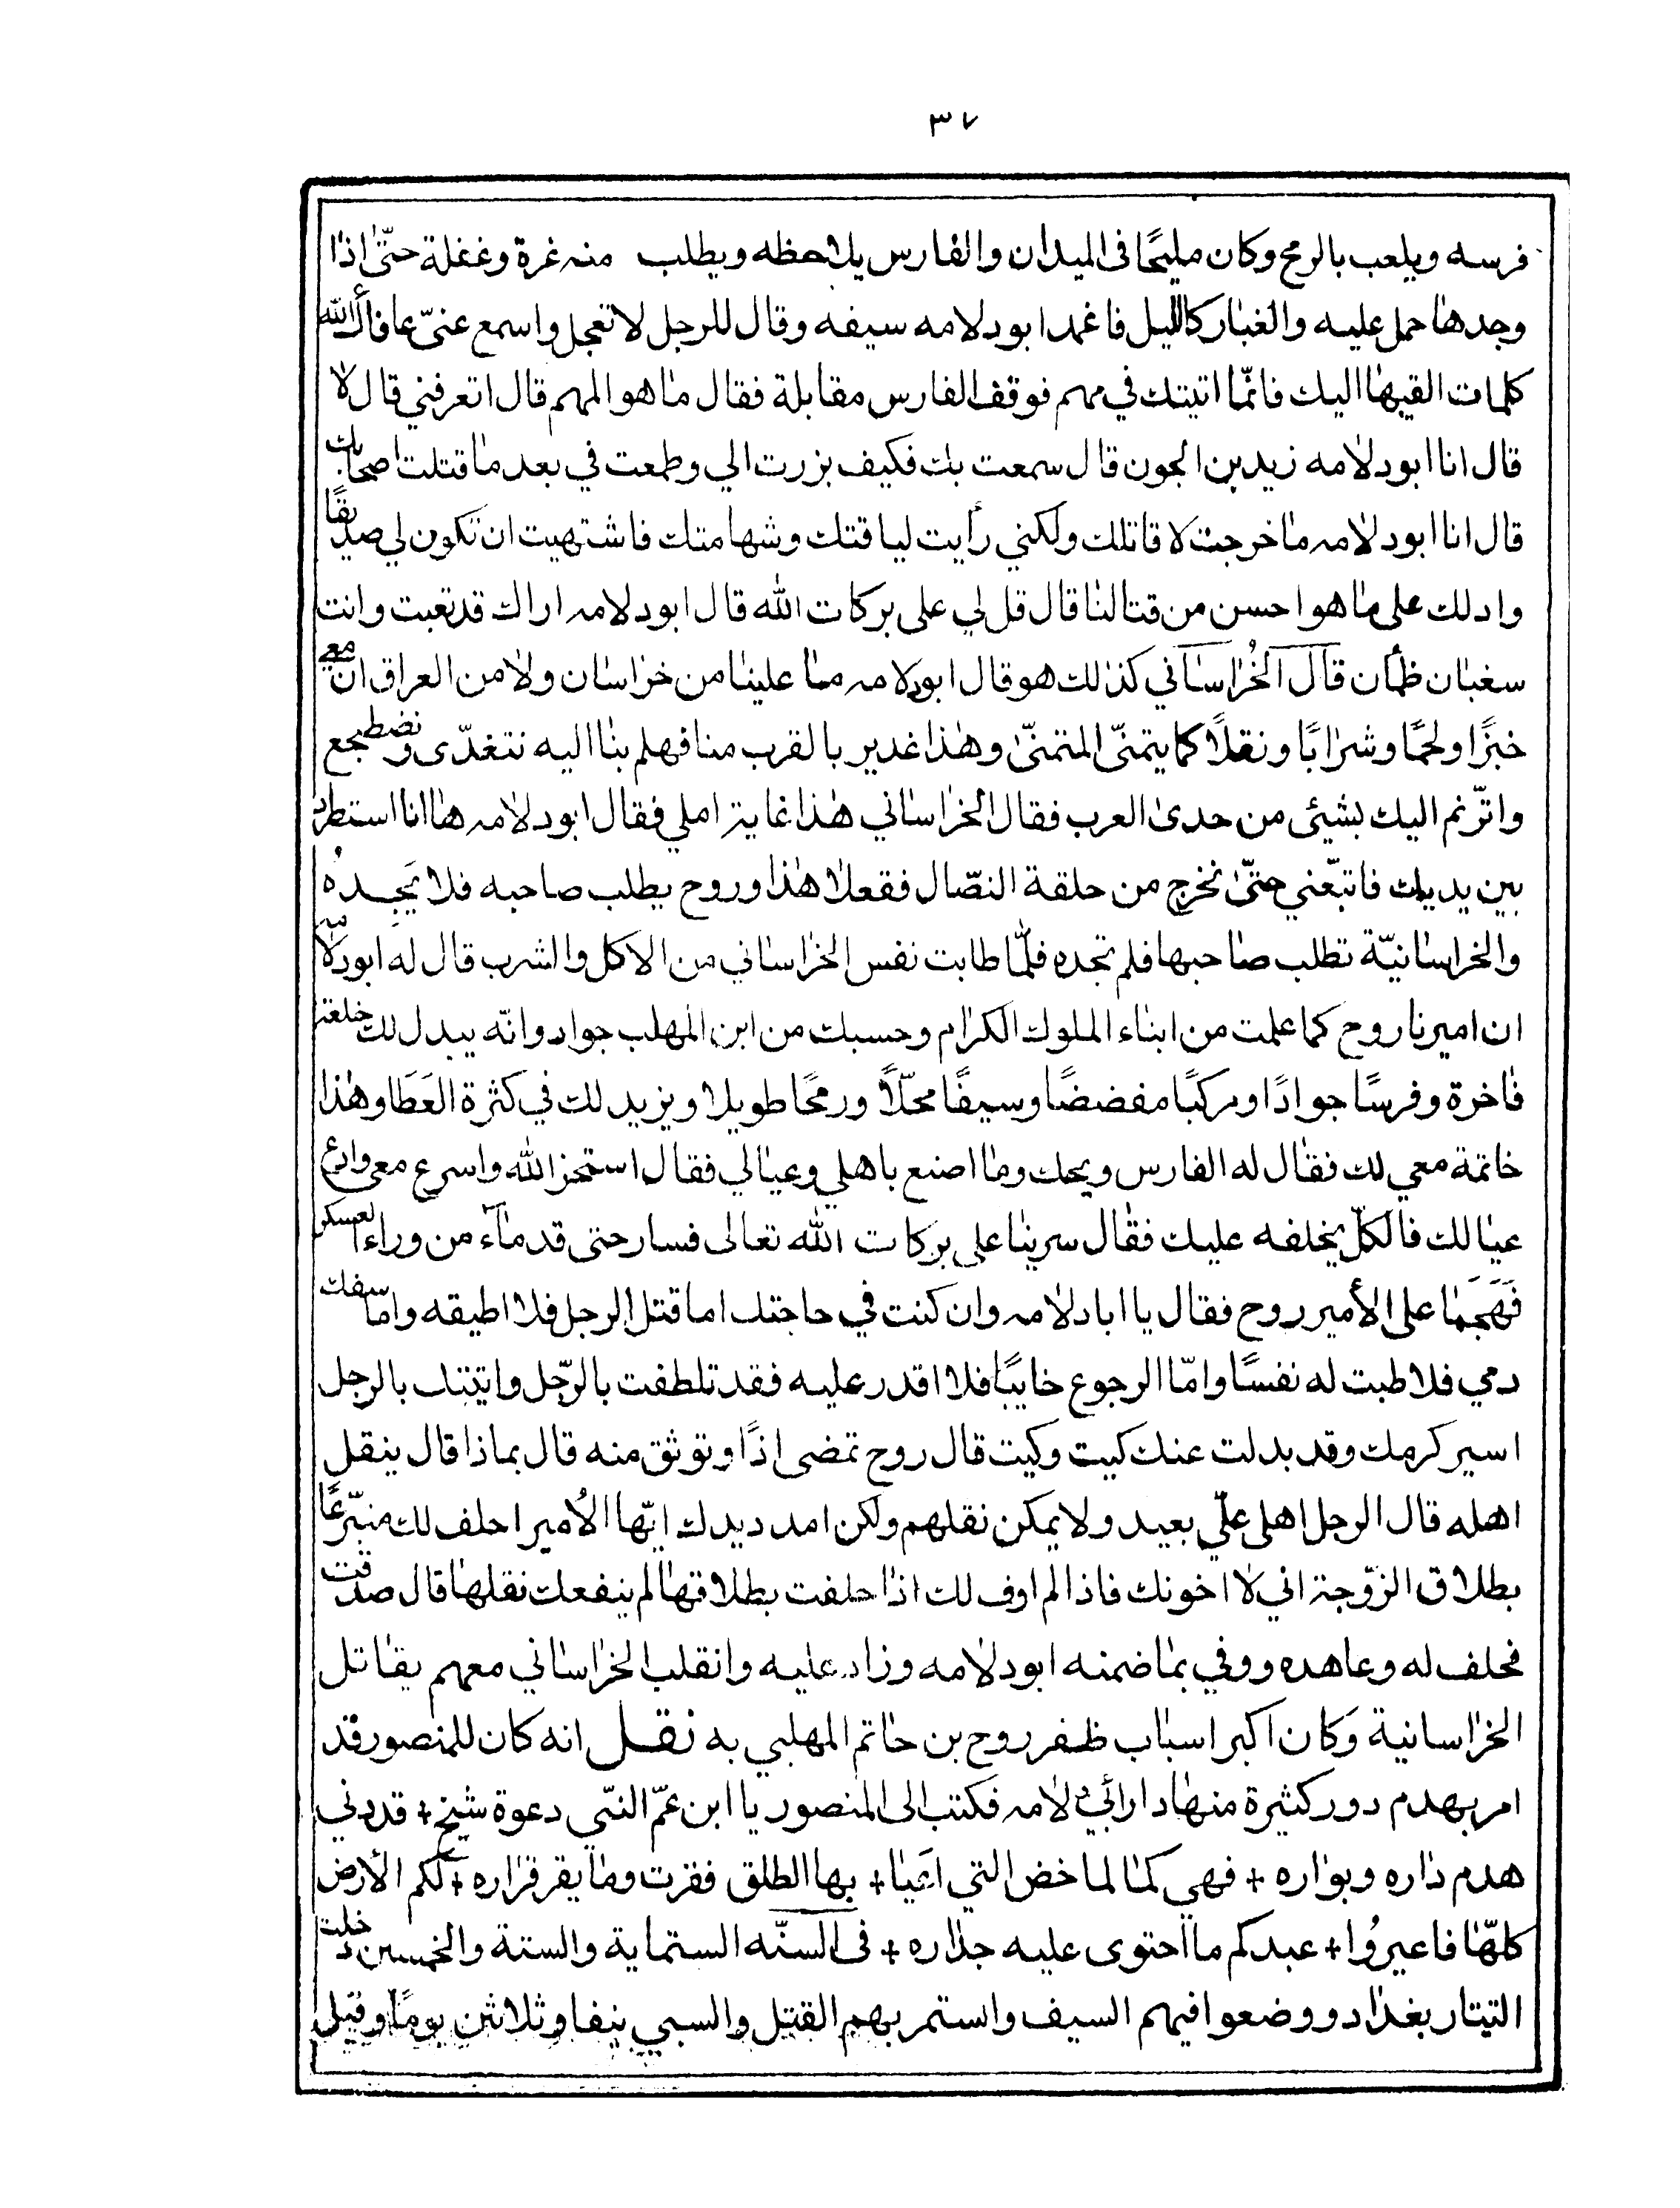 ٣٧
فرسه ويلعب بالرمح وكان مليحًا فى الميدان والفارس يلاحظه ويطلب منه غرة وغفلة حتّى اذا
وجدها حمل عليه والغبار كالليل فاغمد ابودلامه سيفه وقال للرجل لا تعجل واسمع عنىّ عافاك الله
كلمات القيها اليك فانّما اتيتك في مهم فوقف الفارس مقابلة فقال ما هو المهم قال اتعرفني قال لا
قال انا ابودلامه زيد بن الجون قال سمعت بك فكيف بزرت الي وطمعت في بعد ما قتلت اصحابك
قال انا ابودلامه ما خرجت لا قاتلك ولكني رأيت لياقتك وشهامتك فاشتهيت ان تكون لي صديقًا
وادلك على ما هو احسن من قتالنا قال قل لي على بركات الله قال ابودلامه اراك قد تعبت وانت
سغبان ظمأن قال الخُراساني كذلك هو قال ابودلامه ما علينا من خراسان ولا من العراق ان معي
خبزًا ولحمًا وشرابًا ونقلًا كما يتمنّى المتمنّى وهذا غدير بالقرب منا فهلم بنا اليه نتغدّى ونضطجع
واترّنم اليك بشيئ من حدى العرب فقال الخراساني هذا غاية املي فقال ابودلامه ها انا استطرد
بين يديك فاتبّعني حتّى نخرج من حلقة النصّال ففعلا هذا وروح يطلب صاحبه فلا يَجِدُه
والخراسانيّة تطلب صاحبها فلم تجده فلّما طابت نفس الخراساني من الاكل والشرب قال له ابودلامه
ان اميرنا روح كما علمت من ابناء الملوك الكرام وحسبك من ابن المهلب جواد وانّه يبدل لك خلعة
فاخرة وفرسًا جوادًا ومركبًا مفضضًا وسيفًا محلّاً ورمحًا طويلا ويزيد لك في كثرة العَطَا وهذا
خاتمة معي لك فقال له الفارس ويحك وما اصنع باهلي وعيالي فقال استخز الله واسرع معى وادع
عيالك فالكلّ يخلفه عليك فقال سر بنا على بركات الله تعالى فسار حتى قدماآء من وراء العسكر
فَهَجَما على الأمير روح فقال يا ابا دلامه وان كنت في حاجتك اما قتل الرجل فلا اطيقه واما سفك
دمي فلا طبت له نفسًا وامّا الرجوع خايبًا فلا اقدر عليه فقد تلطفت بالرّجل واتيتك بالرجل
اسير كرمك وقد بدلت عنك كيت وكيت قال روح تمضى اذًا وتوثق منه قال بماذا قال ينقل
اهله قال الرجل اهلى علّي بعيد ولا يمكن نقلهم ولكن امدد يدك ايّها الأمير احلف لك متبّرعًا
بطلاق الزوّجة اني لا اخونك فاذا لم اوف لك اذا حلفت بطلاقها لم ينفعك نقلها قال صدقت
فحلف له وعاهده ووفي بما ضمنه ابودلامه وزاد عليه وانقلب الخراساني معهم يقاتل
الخراسانية وَكان اكبر اسباب ظفر روح بن حاتم المهلبي به نقل انه كان للمنصور قد
امر بهدم دور كثيرة منها دار أبي دلامه فكتب الى المنصور يا ابن عمّ النبّى دعوة شيخ + قد دني
هدم داره وبواره + فهي كما لماخض التي اعَيا + بها الطلق فقرت وما يقر قراره + لكم الأرض
كلهّا فاعيرُوا + عبدكم ما احتوى عليه جداره + فى السنّه الستماية والستة والخمسين دخلت
التيتار بغداد ووضعوا فيهم السيف واستمر بهم القتل والسبي ينفا وثلاثين يومًا وقتل